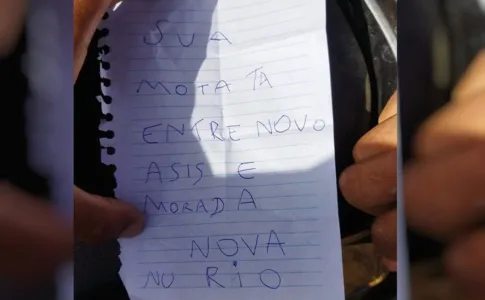 SUA
MOTA TA
ENTRE NOVO
ASIS E
MORADA
NOVA
NO RIO